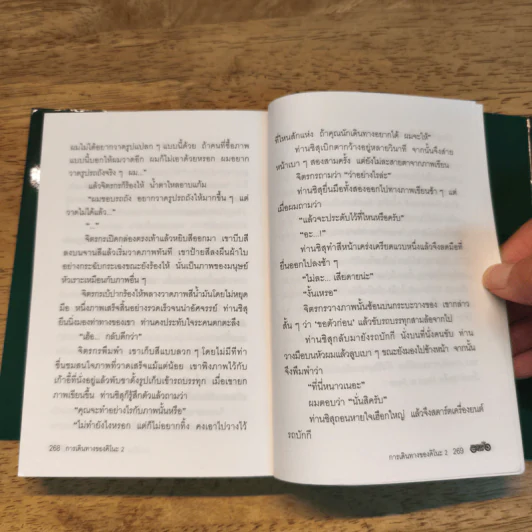 ผมไม่ได้อยากวาดรูปแปลก ๆ แบบนี้ด้วย ถ้าคนที่ซื้อภาพ
แบบนี้บอกให้ผมวาดอีก ผมก็ไม่เอาด้วยหรอก ผมอยาก
วาดรูปรถถังจริง ๆ ผม..."
แล้วจิตรกรก็ร้องไห้ น้ำตาไหลอาบแก้ม
"ผมชอบรถถัง อยากวาดรูปรถถังให้มากขึ้น ๆ แต่
วาดไม่ได้แล้ว..."
"..."
จิตรกรเปิดกล่องตรงเท้าแล้วหยิบสีออกมา เขาบีบสี
ลงบนจานสีแล้วเริ่มวาดภาพทันที เขาป้ายสีลงผืนผ้าใบ
อย่างกระฉับกระเฉงขณะยังร้องไห้ นั่นเป็นภาพของมนุษย์
หัวเราะเหมือนกับภาพอื่น ๆ
จิตรกรเบ้ปากร้องไห้พลางวาดภาพสีน้ำมันโดยไม่หยุด
มือ หนึ่งภาพเสร็จสิ้นอย่างรวดเร็วจนน่าอัศจรรย์ ท่านชิสุ
ยืนนิ่งมองท่าทางของเขา ท่านคงประทับใจระคนตกตะลึง
"เสร็จ... กลับดีกว่า"
จิตรกรพึมพำ เขาเก็บสีแบบลวก ๆ โดยไม่มีทีท่า
ชื่นชมสนใจภาพที่วาดเสร็จแม้แต่น้อย เขาพิงภาพไว้กับ
เก้าอี้ที่นั่งอยู่แล้วพับขาตั้งรูปเก็บเข้ารถบรรทุก เมื่อเขายก
ภาพเขียนขึ้น ท่านชิสุก็รู้สึกตัวแล้วถามว่า
"คุณจะทำอย่างไรกับภาพนั้นหรือ"
"ไม่ทำยังไงหรอก แต่ก็ไม่อยากทิ้ง คงเอาไปวางไว้
268 การเดินทางของคิโนะ 2
ที่ไหนสักแห่ง ถ้าคุณนักเดินทางอยากได้ ผมจะให้"
ท่านชิสุเบิกตากว้างอยู่หลายวินาที จากนั้นจึงส่าย
หน้าเบา ๆ สองสามครั้ง แต่ยังไม่ละสายตาจากภาพเขียน
จิตรกรถามว่า "ว่าอย่างไรล่ะ"
ท่านชิสุยื่นมือทั้งสองออกไปทางภาพเขียนช้า ๆ แต่
เมื่อผมถามว่า
"แล้วจะประดับไว้ที่ไหนหรือครับ"
"อะ...!"
ท่านชิสุทำสีหน้าเคร่งเครียดแวบหนึ่งแล้วจึงลดมือที่
ยื่นออกไปลงช้า ๆ
"ไม่ละ... เสียดายน่ะ"
"งั้นเหรอ"
จิตรกรวางภาพนั้นซ้อนบนกระบะวางของ เขากล่าว
สั้น ๆ ว่า 'ขอตัวก่อน' แล้วขับรถบรรทุกสามล้อจากไป
ท่านชิสุกลับมายังรถบักกี้ นั่งบนที่นั่งคนขับ ท่าน
วางมือบนหัวผมแล้วลูบเบา ๆ ขณะยังมองไปข้างหน้า จากนั้น
จึงพึมพำว่า
"ที่นี่หนาวเนอะ"
ผมตอบว่า "นั่นสิครับ"
ท่านชิสุถอนหายใจเฮือกใหญ่ แล้วจึงสตาร์ตเครื่องยนต์
รถบักกี้
การเดินทางของคิโนะ 2 269